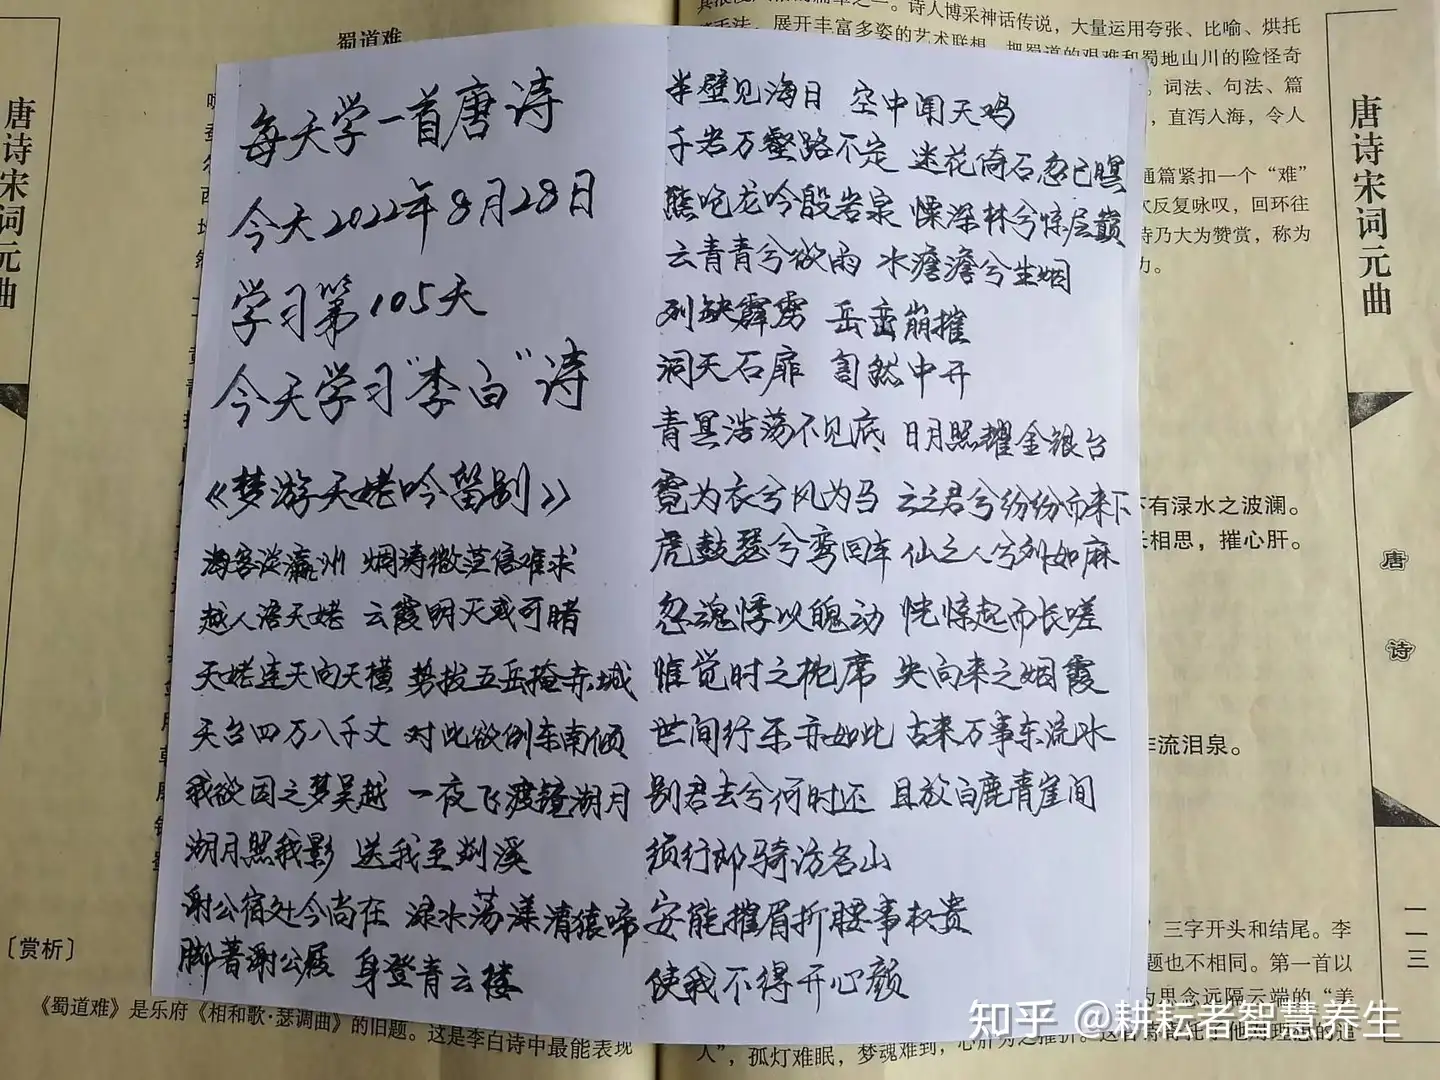 唐诗宋词元曲
蜀道难
〔赏析〕
《蜀道难》是乐府《相和歌·瑟调曲》的旧题。这是李白诗中最能表现
每天学一首唐诗
今天2022年8月28日
学习第105天
今天学习“李白”诗
《梦游天姥吟留别》
海客谈瀛洲 烟涛微茫信难求
越人语天姥 云霞明灭或可睹
天姥连天向天横 势拔五岳掩赤城
天台四万八千丈 对此欲倒东南倾
我欲因之梦吴越 一夜飞渡镜湖月
湖月照我影 送我至剡溪
谢公宿处今尚在 渌水荡漾清猿啼
脚著谢公屐 身登青云楼
半壁见海日 空中闻天鸡
千岩万壑路不定 迷花倚石忽已暝
熊咆龙吟殷岩泉 慄深林兮惊层巅
云青青兮欲雨 水澹澹兮生烟
列缺霹雳 岳峦崩摧
洞天石扉 訇然中开
青冥浩荡不见底 日月照耀金银台
霓为衣兮风为马 云之君兮纷纷而来下
虎鼓瑟兮鸾回车 仙之人兮列如麻
忽魂悸以魄动 恍惊起而长嗟
惟觉时之枕席 失向来之烟霞
世间行乐亦如此 古来万事东流水
别君去兮何时还 且放白鹿青崖间
须行即骑访名山
安能摧眉折腰事权贵
使我不得开心颜
诗人博采神话传说，大量运用夸张、比喻、烘托
手法，展开丰富多姿的艺术联想，把蜀道的艰难和蜀地山川的险怪奇
词法、句法、篇
，直泻入海，令人
通篇紧扣一个“难”
反复咏叹，回环往
诗乃大为赞赏，称为
力。
有渌水之波澜。
长相思，摧心肝。
流泪泉。
三字开头和结尾。李
题也不相同。第一首以
为思念远隔云端的“美
人”，孤灯难眠，梦魂难到，
唐诗宋词元曲
唐诗
一一三
知乎 @耕耘者智慧养生